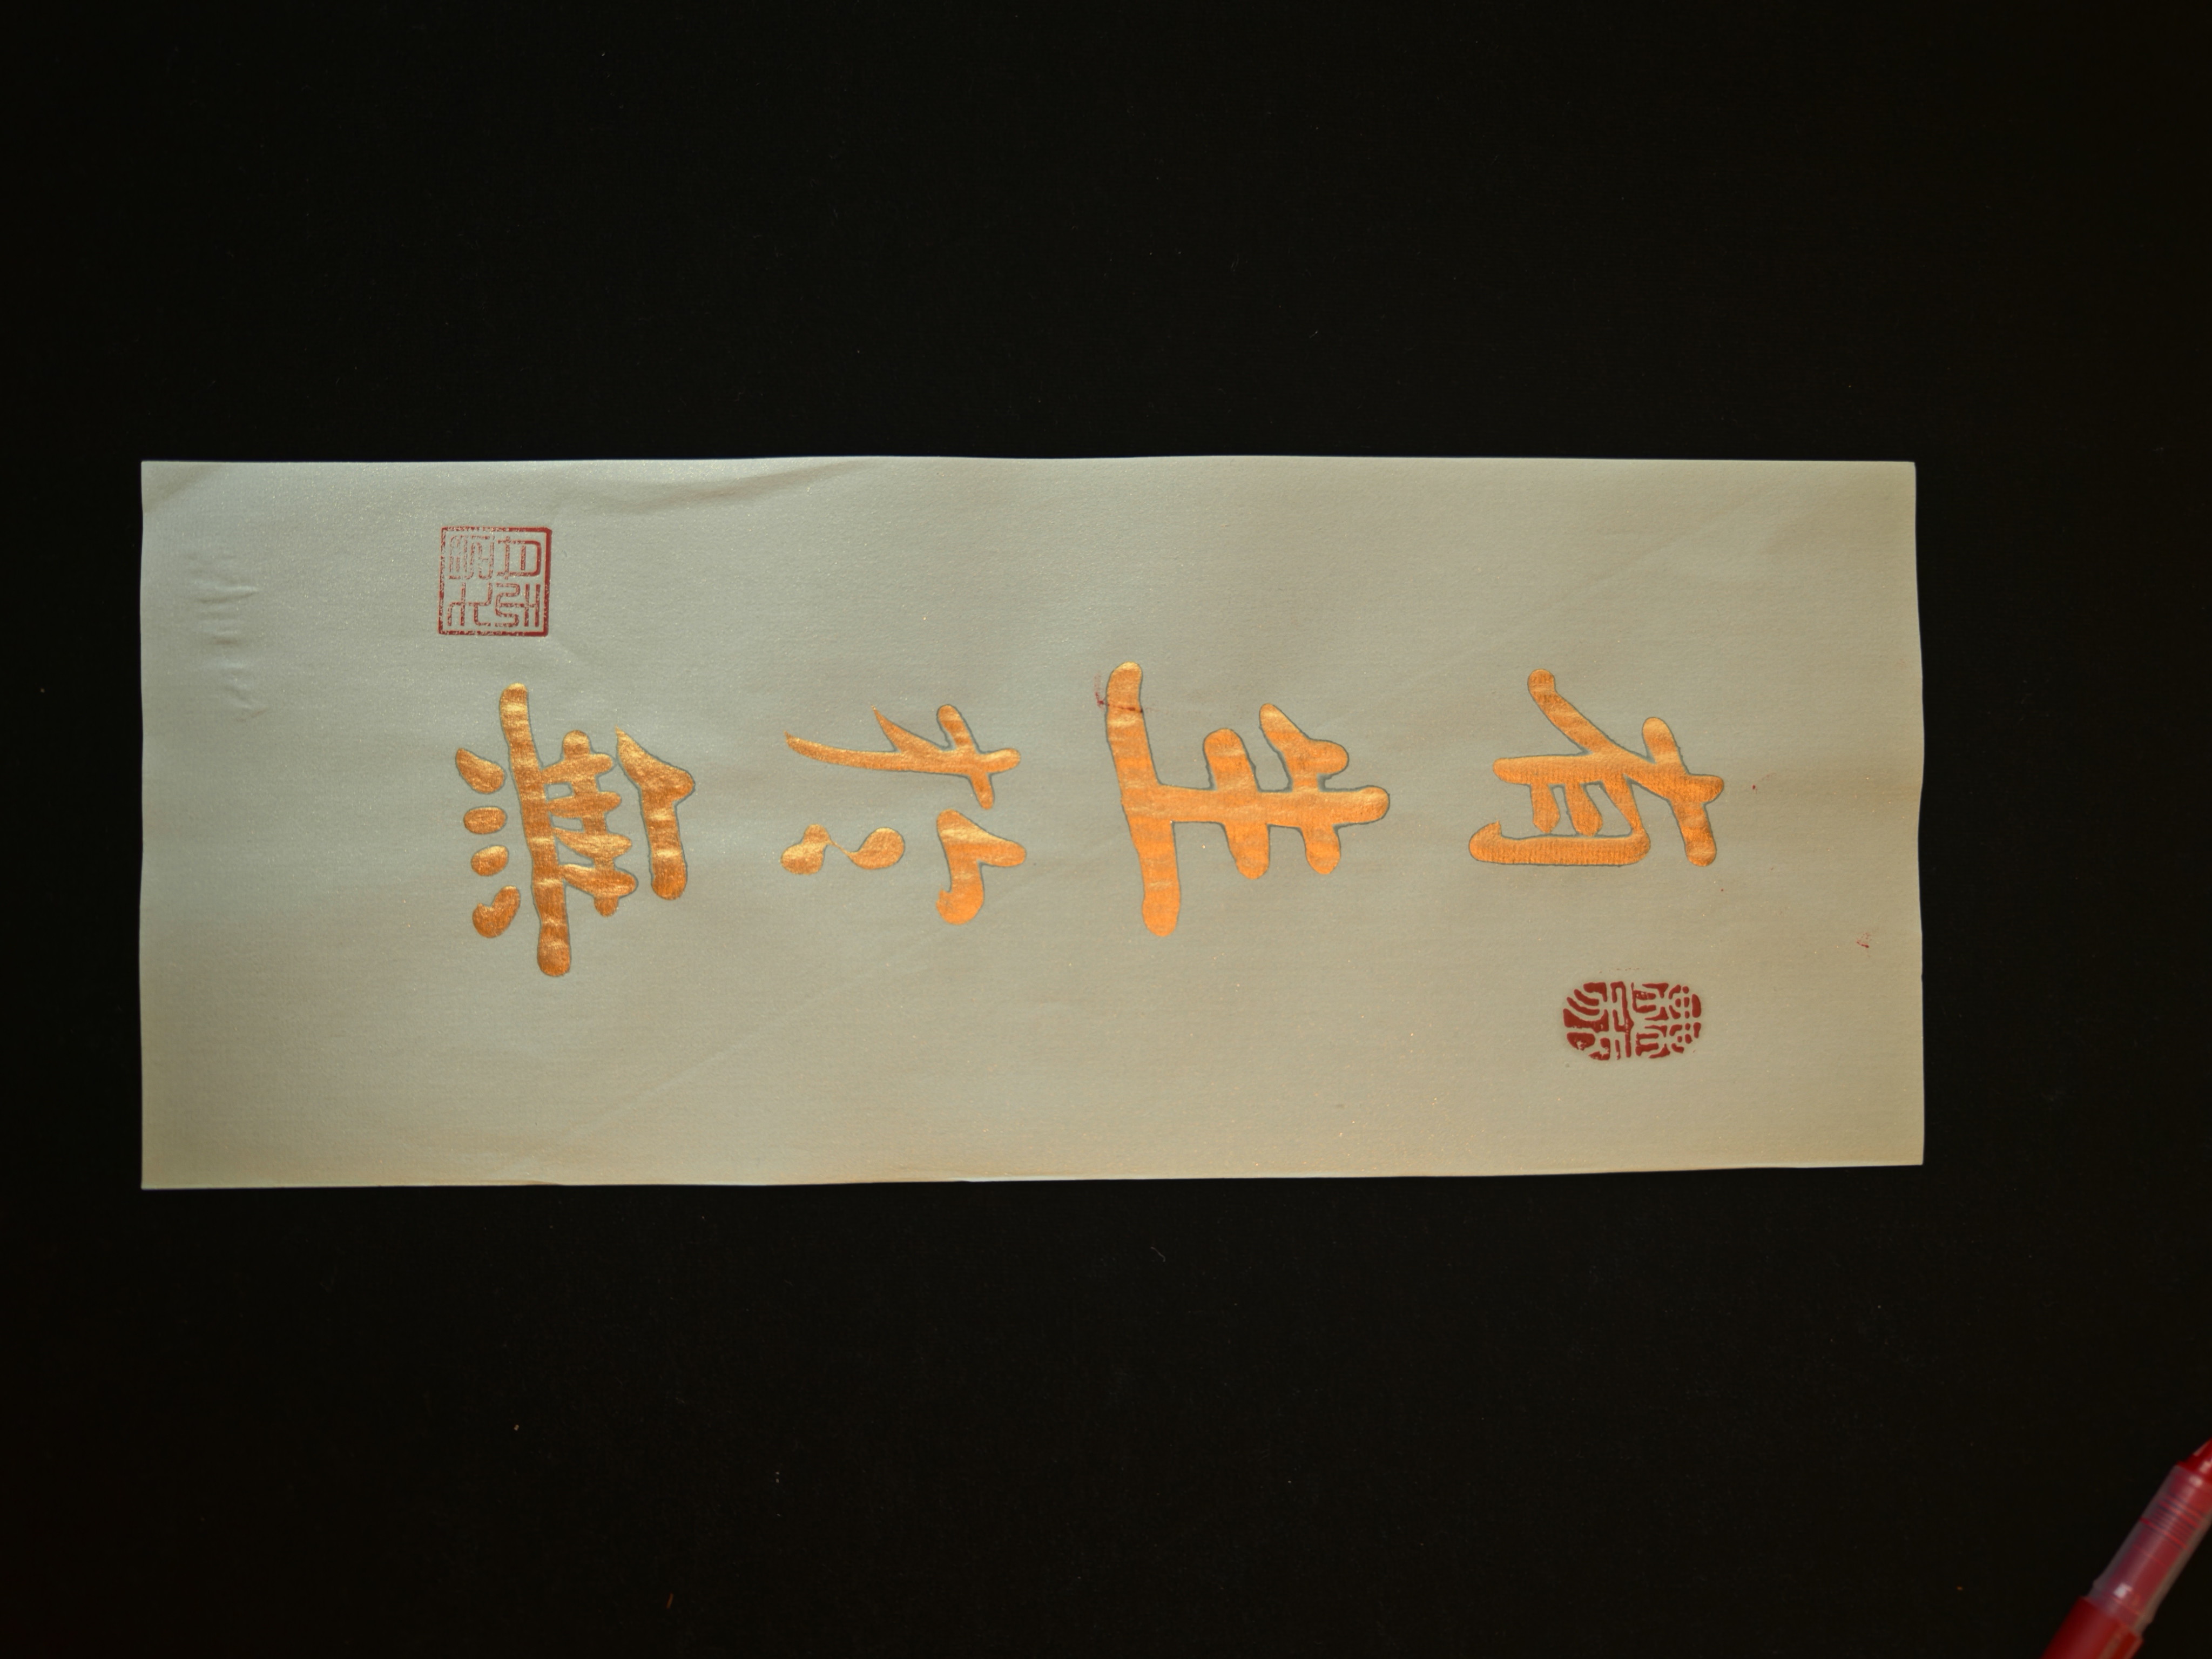 有生於無